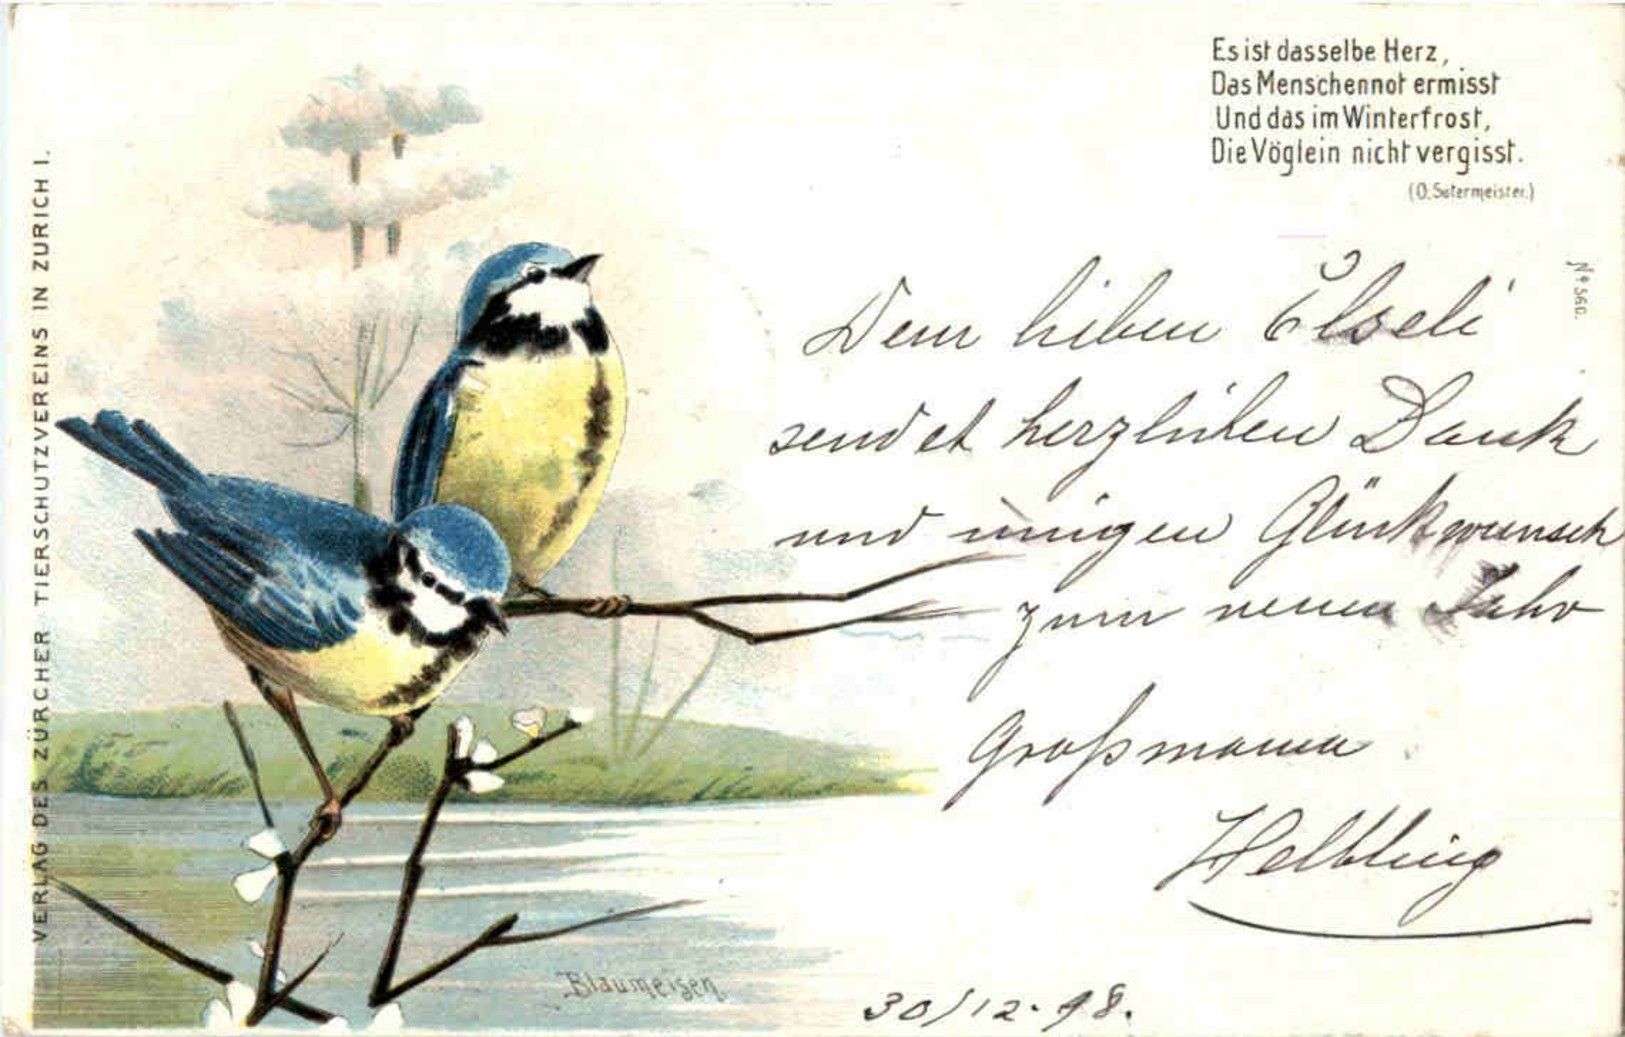 Es ist dasselbe Herz,
Das Menschennot ermisst
Und das im Winterfrost,
Die Vöglein nicht vergisst.
(O. Sutermeister.)
No 560.
Dem lieben Elseli
sendet herzlichen Dank
und innigen Glückwunsch
zum neuen Jahr
Großmama
Helbling
30/12.98.
Blaumeisen
VERLAG DES ZÜRCHER TIERSCHUTZVEREINS IN ZURICH I.